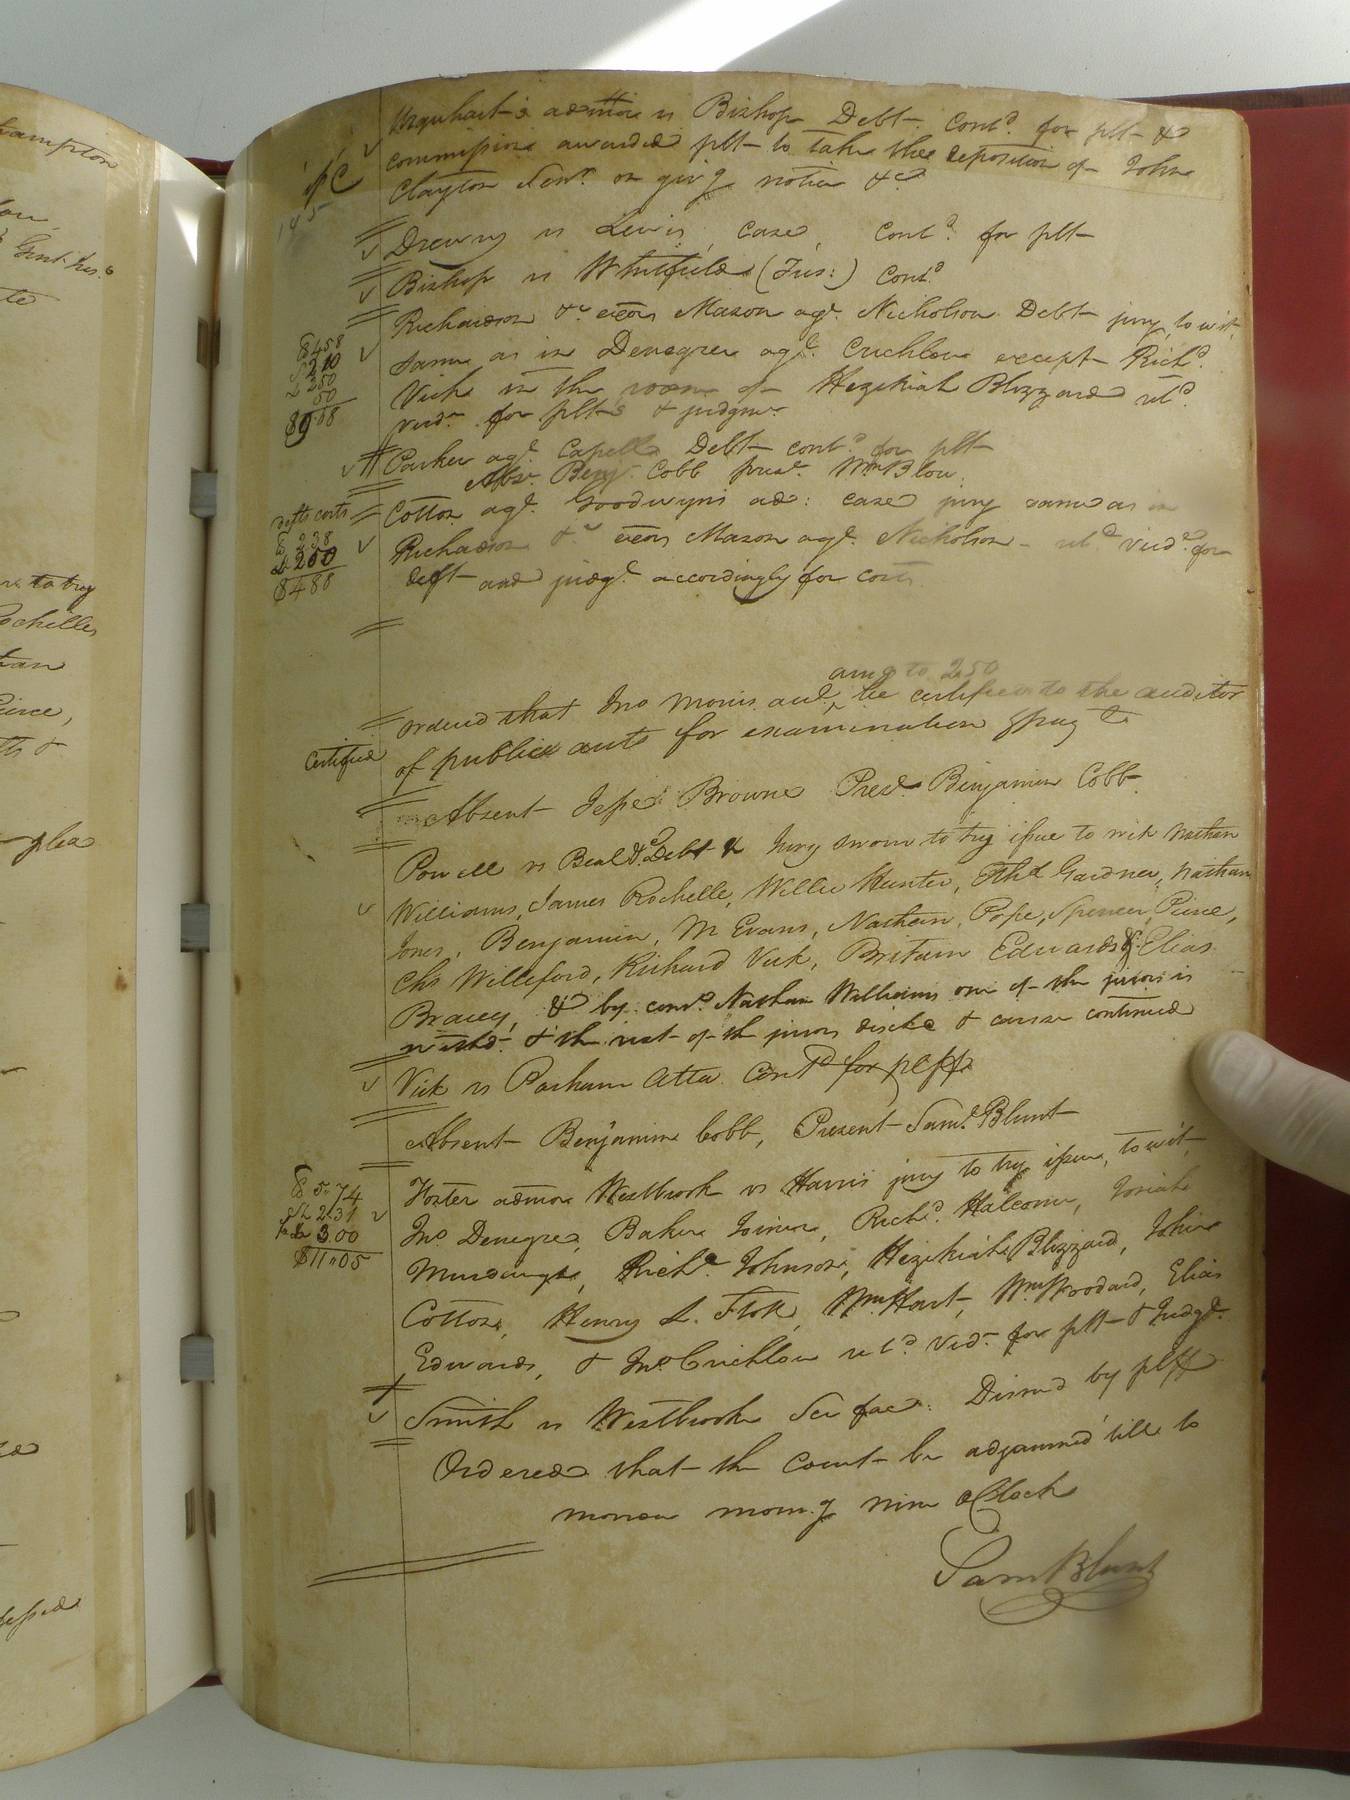 Urquhart's admtrix vs Bishop Debt. Contd. for plt &
commission awarded plt to take the deposition of John
Clayton Senr. on givg notice &c
Drewry vs Lewis, Case, Contd. for plt
Bishop vs Whitfield (Tres:) Contd
Richardson &c exors Mason agt. Nicholson Debt jury, to wit,
same as in Denegree agt. Crichlow except Richd.
Vick in the room of Hezekiah Blizzard retd.
verdt for plts & judgmt
$4.58
2.10
2.50
50
$9.08
Parker agt. Capell Debt contd for plt
Abst. Benj. Cobb prest. Wm Blow.
Cotton agt. Goodwyns ad: case jury same as in
Richardson &c exors Mason agt. Nicholson - retd. verdt. for
deft and judgt. accordingly for costs
defts costs
2.38
2.50
$4.88
amg to 250
ordered that Jno Morris acct. be certified to the auditor
of publick accts for examination & paymt
Certified
Absent Jesse Browne Prest. Benjamin Cobb
Powell vs Beal &c. Debt & Jury sworn to try issue to wit Nathan
Williams, James Rochelle, Willie Hunter, Ethd Gardner, Nathan
Jones, Benjamin, M Evans, Nathan Pope, Spencer Pierce,
Chs Williford, Richard Vick, Britain Edwards & Elias
Bracey, & by consd. Nathan Williams one of the jurors is
withd. & the rest of the jurors discd & cause continued
Vick vs Parham Atta. Contd for plff
Absent Benjamin Cobb, Present Saml. Blunt
Foster admor Westbrook vs Harris jury to try issue, to wit,
Jno. Denegree, Baker Joiner, Richd. Halcome, Josiah
Murdaugh, Richd. Johnson, Hezekiah Blizzard, John
Cotton, Henry L. Stok, Wm Hart, Wm Woodard, Elias
Edwards, & Jno. Crichlow retd. verdt. for plt & Judgt.
$5.74
2.31
3.00
$11.05
Smith vs Westbrook Sci facs. Dismd by plff
Ordered that the Court be adjourned till to
morrow morng nine oClock
Sam Blunt